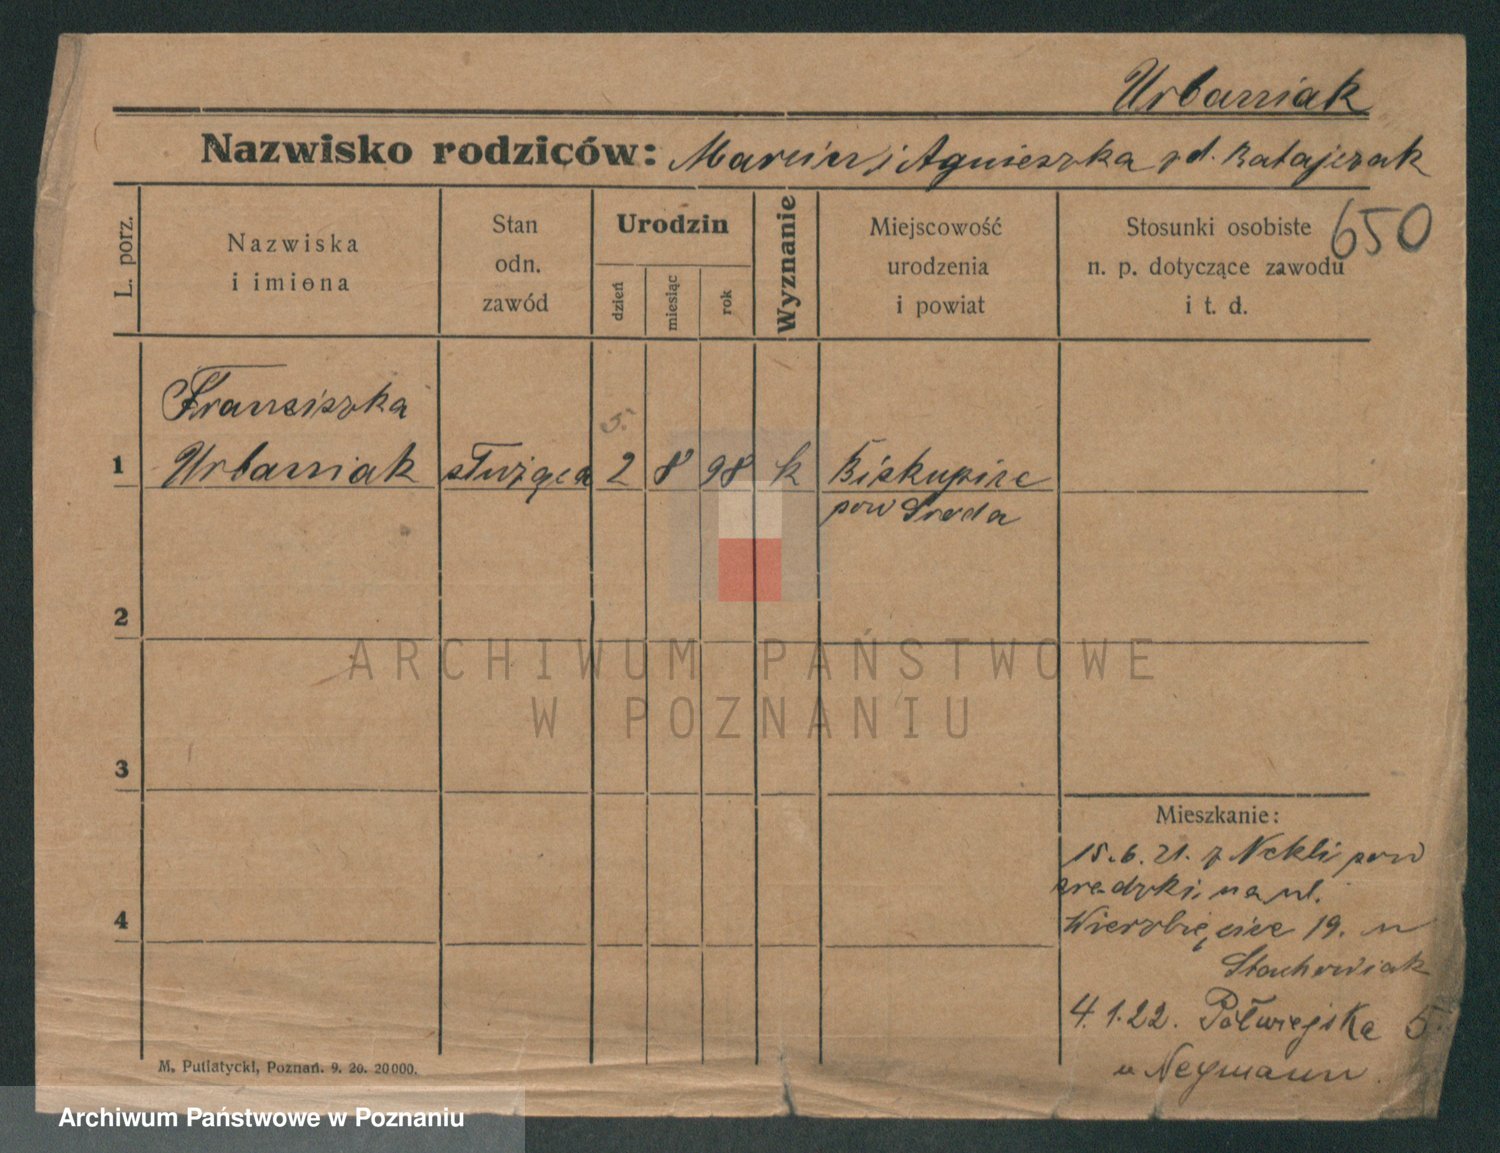 Urbaniak
Nazwisko rodziców: Marcin i Agnieszka zd. Ratajczak
650
L. porz.
Nazwiska
i imiona
Stan
odn.
zawód
Urodzin
dzień
miesiąc
rok
Wyznanie
Miejscowość
urodzenia
i powiat
Stosunki osobiste
n. p. dotyczące zawodu
i t. d.
Franciszka
5.
1 Urbaniak służąca 2 8 98 k Biskupice
pow Sroda
2
3
4
Mieszkanie:
15.6.21. z Nekli pow
sredzki, na ul.
Wierzbięcice 19. u
Stachowiak
4.1.22. Półwiejska 5.
u Neymann.
M. Putiatycki, Poznań. 9. 20. 20000.
ARCHIWUM PAŃSTWOWE
W POZNANIU
Archiwum Państwowe w Poznaniu